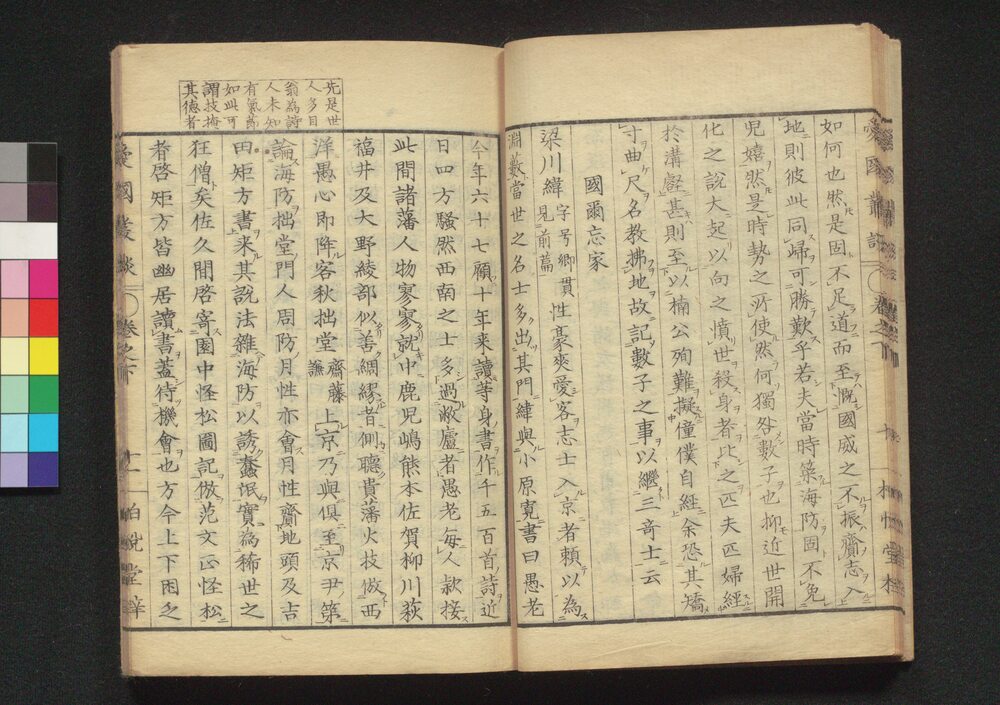 如何也然是固不足道而至慨國威之不振齎志入
地則彼此同歸可勝歎乎若夫當時築海防固不免
兒嬉然是時勢之所使然何獨咎數子也抑近世開
化之說大起以向之憤世殺身者比之匹夫匹婦經
於溝壑甚則至以楠公殉難擬僮僕自經余恐其矯
寸曲尺名教拂地故記數子之事以繼三奇士云
國爾忘家
梁川緯字号鄉貫見前篇性豪爽愛客志士入京者賴以為
淵藪當世之名士多出其門緯與小原寬書曰愚老
今年六十七願十年来讀等身書作千五百首詩近
日四方騷然西南之士多過敝廬者愚老每人款接
此間諸藩人物寥寥就中鹿児嶋熊本佐賀柳川荻
福井及大野綾部似善綢繆者側聽貴藩火技倣西
洋愚心即降客秋拙堂齋藤謙上京乃與俱至京尹第
論海防拙堂門人周防月性亦會月性齎地頭及吉
田矩方書来其說法雜海防以誘蠢氓實為稀世之
狂僧矣佐久間啓寄園中怪松圖記倣范文正怪松
者啓矩方皆幽居讀書蓋待機會也方今上下困乏
先是世
人多目
翁為詩
人未知
有氣節
如此可
謂技掩
其德者
愛國叢談
卷之下
十一